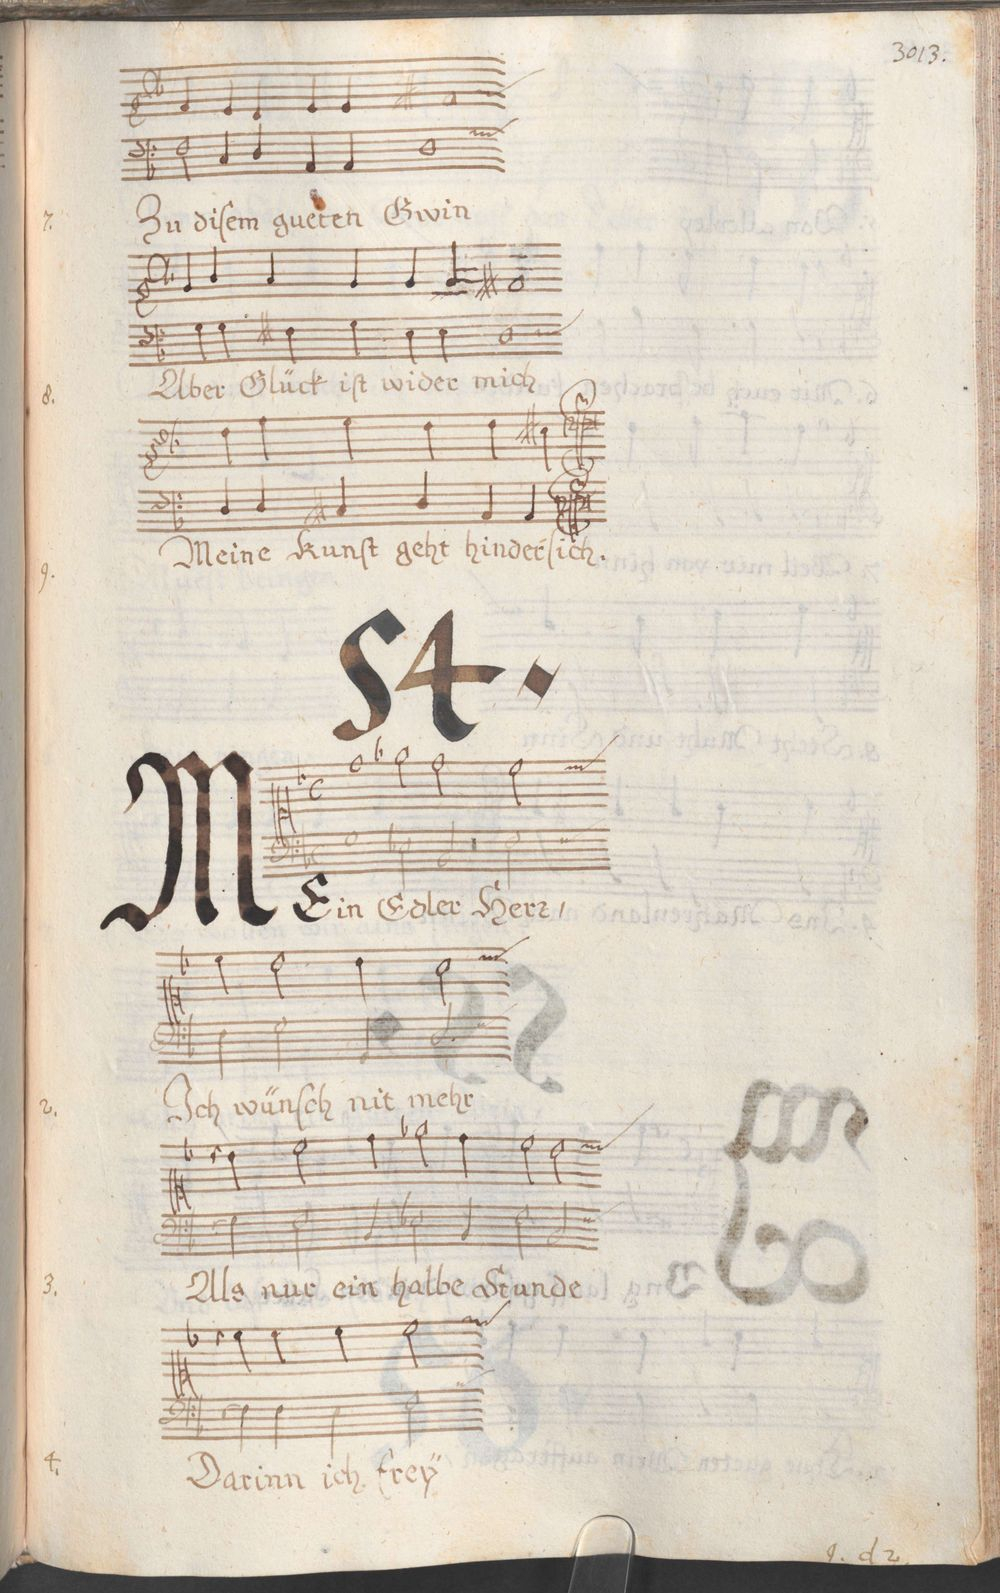 3013.
7. Zu disem gueten Gwin
8. Aber Glück ist wider mich
9. Meine Kunst geht hindersich.
54.
MEin Edler Herz,
2. Ich wünsch nit mehr
3. Als nur ein halbe Stunde
4. Darinn ich frey
g. d 2